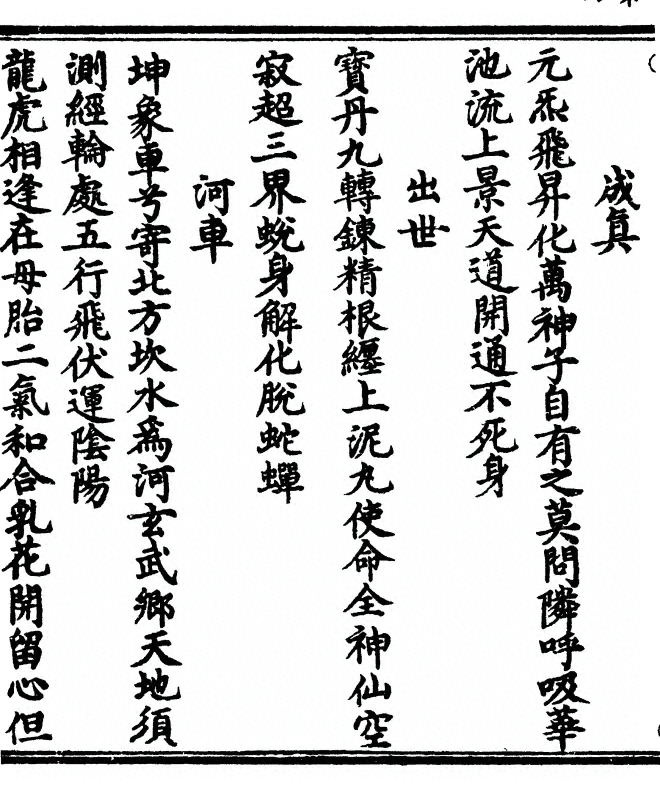 成真
元炁飛昇化萬神子自有之莫問隣呼吸華
池流上景天道開通不死身
出世
寶丹九轉鍊精根纏上泥丸使命全神仙空
寂超三界蛻身解化脫蛇蟬
河車
坤象車兮寄北方坎水爲河玄武鄉天地須
測經輪處五行飛伏運陰陽
龍虎相逢在母胎二氣和合乳花開留心但